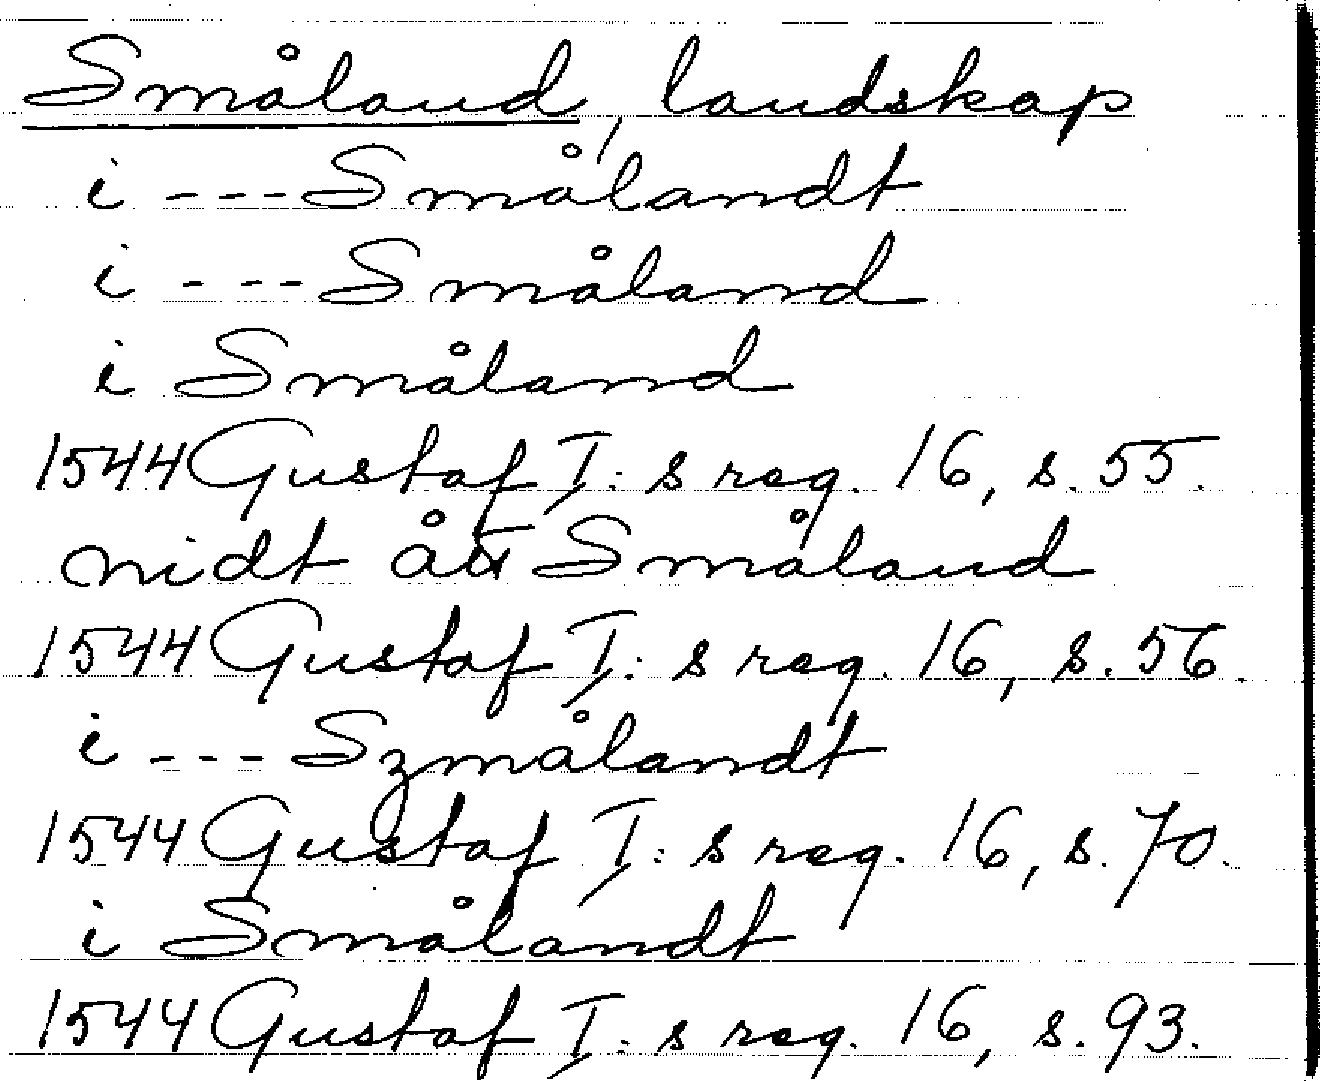 Småland, landskap
i - - - Smålandt
i - - - Småland
i Småland
1544 Gustaf I:s reg. 16, s. 55.
nidt åt Småland
1544 Gustaf I:s reg. 16, s. 56.
i - - - Szmålandt
1544 Gustaf I:s reg. 16, s. 70.
i Smålandt
1544 Gustaf I:s reg. 16, s. 93.